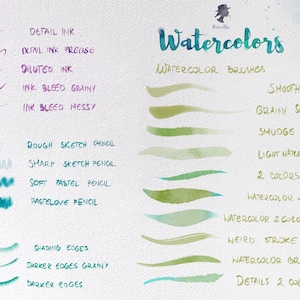 DETAIL INK
DETAIL INK PRECISE
DILUTED INK
INK BLEED GRAINY
INK BLEED MESSY
ROUGH SKETCH PENCIL
SHARP SKETCH PENCIL
SOFT PASTEL PENCIL
PASTELOVE PENCIL
SHADING EDGES
DARKER EDGES GRAINY
DARKER EDGES
Watercolors
WATERCOLOR BRUSHES
SMOOTH
GRAIN S
SMUDGE
LIGHT WATER
2 COLORS
WATERCOLOR
WATERCOLOR 2 COLO
WEIRD STROKE
WATERCOLOR BR
DETAILS 2 CO